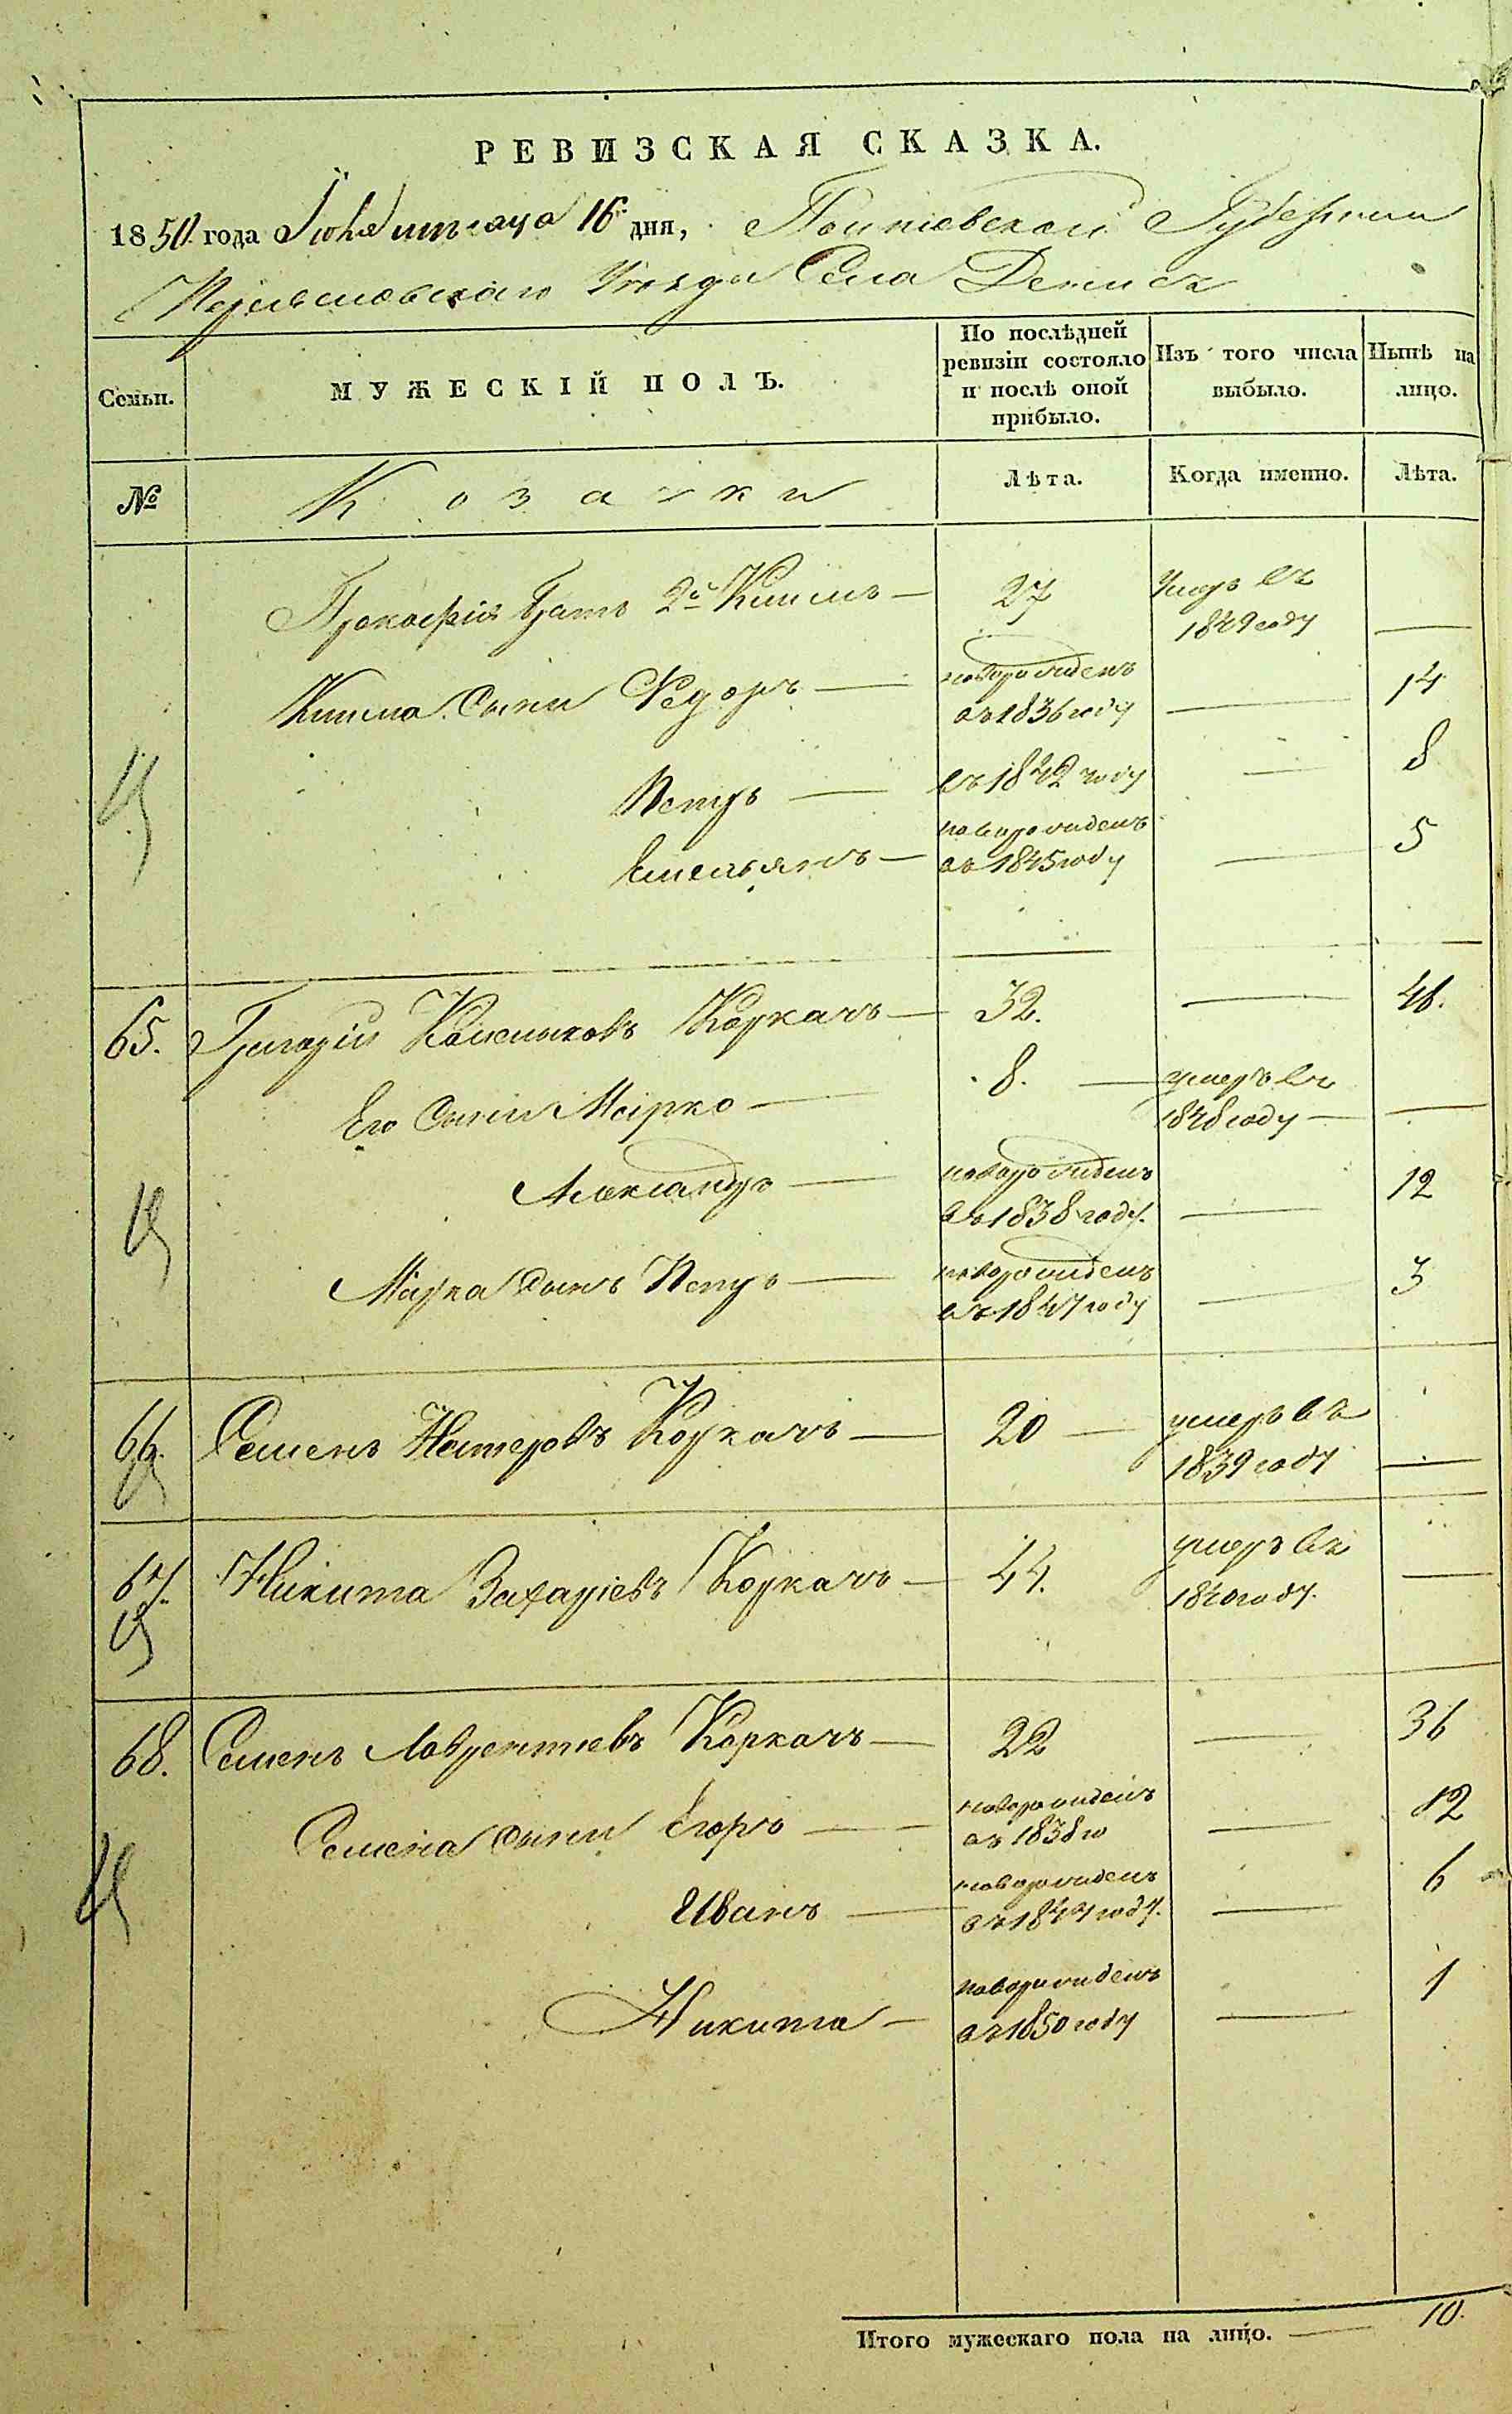 РЕВИЗСКАЯ СКАЗКА.
1850 года мѣсяца 16 дня, Полтавской Губерніи
Переяславскаго Уѣзда Села Денисъ
Семьи.
МУЖЕСКІЙ ПОЛЪ.
По послѣдней
ревизіи состояло
и послѣ оной
прибыло.
Изъ того числа
выбыло.
Нынѣ на
лицо.
№
Козаки
Лѣта.
Когда именно.
Лѣта.
Прокофія братъ 2й — 27 умеръ въ
1849 году —
сыни Федоръ — новорожденъ
въ 1836 году — 14
Петръ — въ 1842 году — 8
Емельянъ — новорожденъ
въ 1845 году — 5
65. Григорій Коркачъ — 32. — 46.
Его сыни Марко — 8. — умеръ въ
1848 году — —
Александръ — новорожденъ
въ 1838 году. — 12
Марка сынъ Петръ — новорожденъ
въ 1847 году — 3
66. Семенъ Нестеровъ Коркачъ — 20 — умеръ въ
1839 году —
67. Никита Захаріевъ Коркачъ — 44. умеръ въ
1840 году. —
68. Семенъ Лаврентіевъ Коркачъ — 22 — 36
Семена сыни Егоръ — новорожденъ
въ 1838 го — 12
Иванъ — новорожденъ
въ 1844 году. — 6
Никита — новорожденъ
въ 1850 году — 1
Итого мужескаго пола на лицо. — 10.